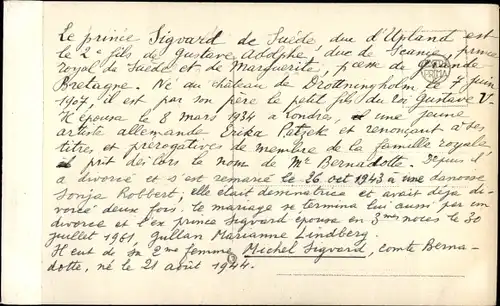 Le prince Sigvard de Suède, duc d'Upland est
le 2e fils de Gustave Adolphe, duc de Scanie, prince
royal de Suède et de Marguerite, pcesse de Grande
Bretagne. Né au château de Drottningholm le 7 juin
1907, il est par son père le petit fils du roi Gustave V.
Il épousa le 8 mars 1934 à Londres, une jeune
artiste allemande Erika Patzek et renonçant à ses
titres et prérogatives de membre de la famille royale
prit dès lors le nom de Mr Bernadotte. Depuis il
a divorcé et s'est remarié le 26 oct 1943 à une danoise
Sonja Robbert, elle était dessinatrice et avait déjà di-
vorcé deux fois. le mariage se termina lui aussi par un
divorce et l'ex prince Sigvard épousa en 3mes noces le 30
juillet 1961, Gullan Marianne Lindberg.
Il eut de sa 2me femme Michel Sigvard, comte Berna-
dotte, né le 21 août 1944.
PRIMA